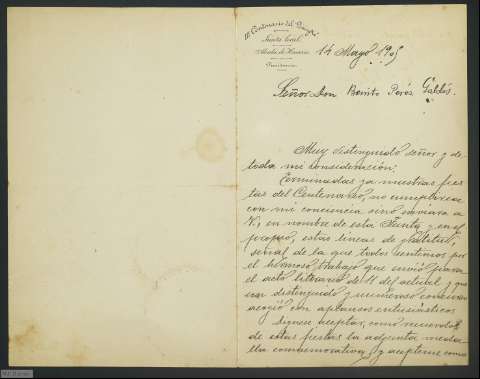 III Centenario del Quijote
Junta local
Alcalá de Henares
Presidencia
14 Mayo 1905
Señor Don Benito Peréz Galdós.
Muy distinguido señor y de
toda mi consideración:
Terminadas ya nuestras fies
tas del Centenario, no cumpliría
con mi conciencia sinó enviara a
V., en nombre de esta Junta y en el
propio, estas lineas de gratitud,
señal de la que todos sentimos por
el hermoso trabajo que envió para
el acto literario del 11 del actual y que
un distinguido y numeroso concurso
acogió con aplausos entusiásticos
Dignese aceptar, como recuerdo
de estas fiestas la adjunta meda
lla conmemorativa, y acepteme como